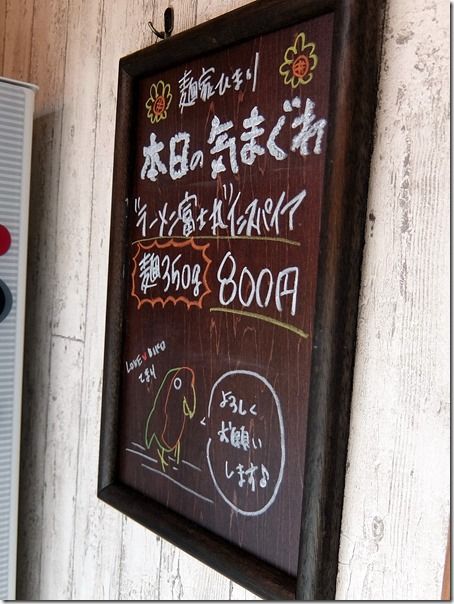 麺家ひまり
本日の気まぐれ
"ラーメン富士丸"インスパイア
麺350g
800円
LOVE♥BIRD
ひまり
よろしく
お願い
します♪